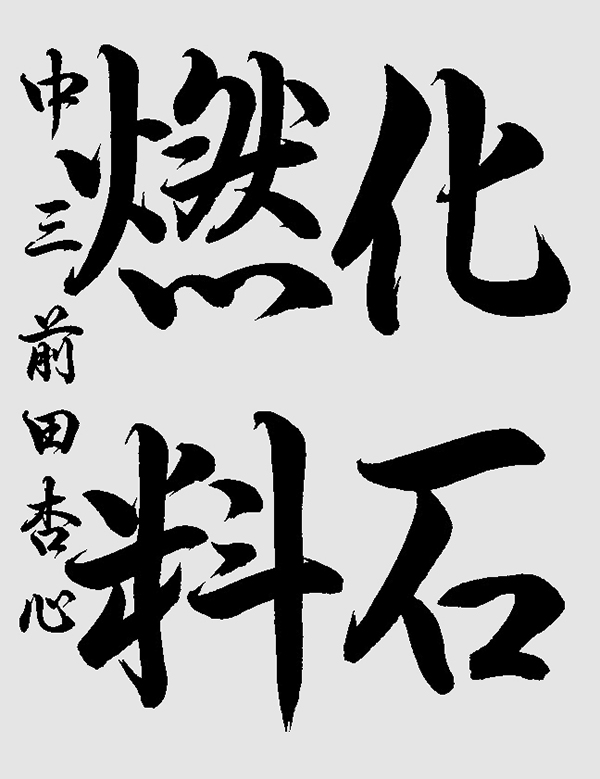 化石
燃料
中三 前田杏心